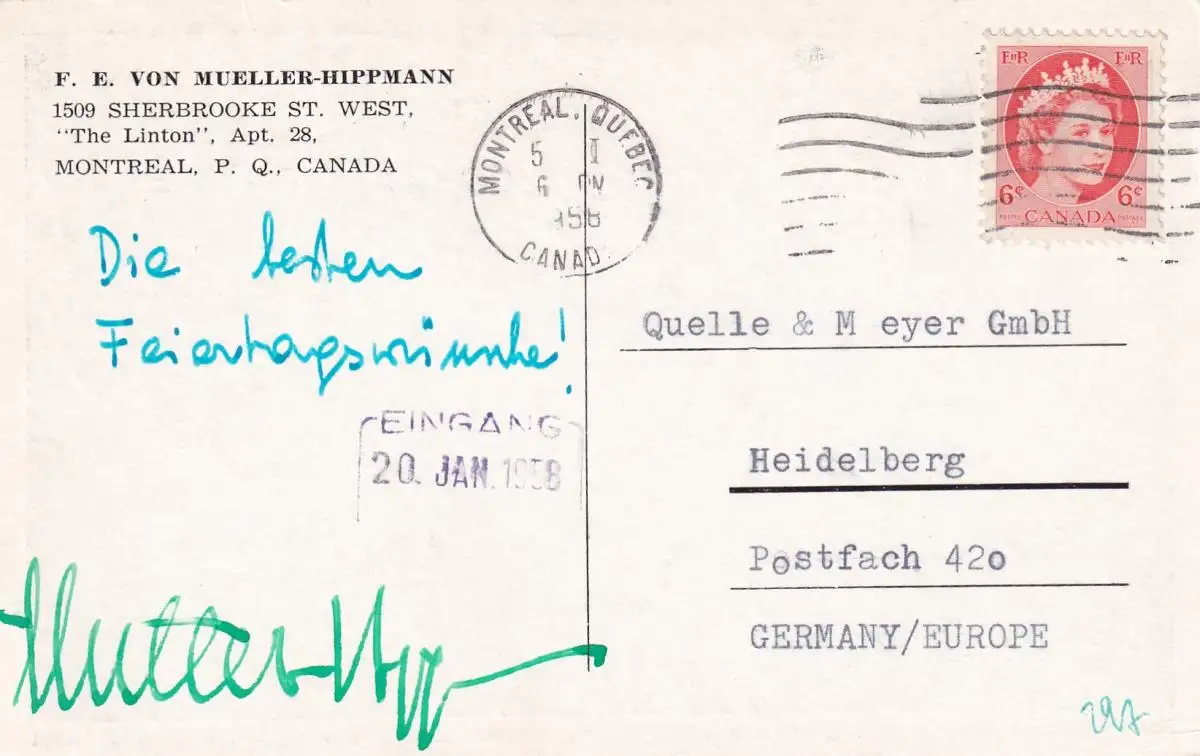 F. E. VON MUELLER-HIPPMANN
1509 SHERBROOKE ST. WEST,
"The Linton", Apt. 28,
MONTREAL, P. Q., CANADA
MONTREAL, QUEBEC
5 I
6 PM
CANAD
EIIR EIIR
6¢ 6¢
POSTES CANADA POSTAGE
Die besten
Feiertagswünsche!
EINGANG
20. JAN. 1958
Quelle & M eyer GmbH
Heidelberg
Postfach 42o
GERMANY/EUROPE
297